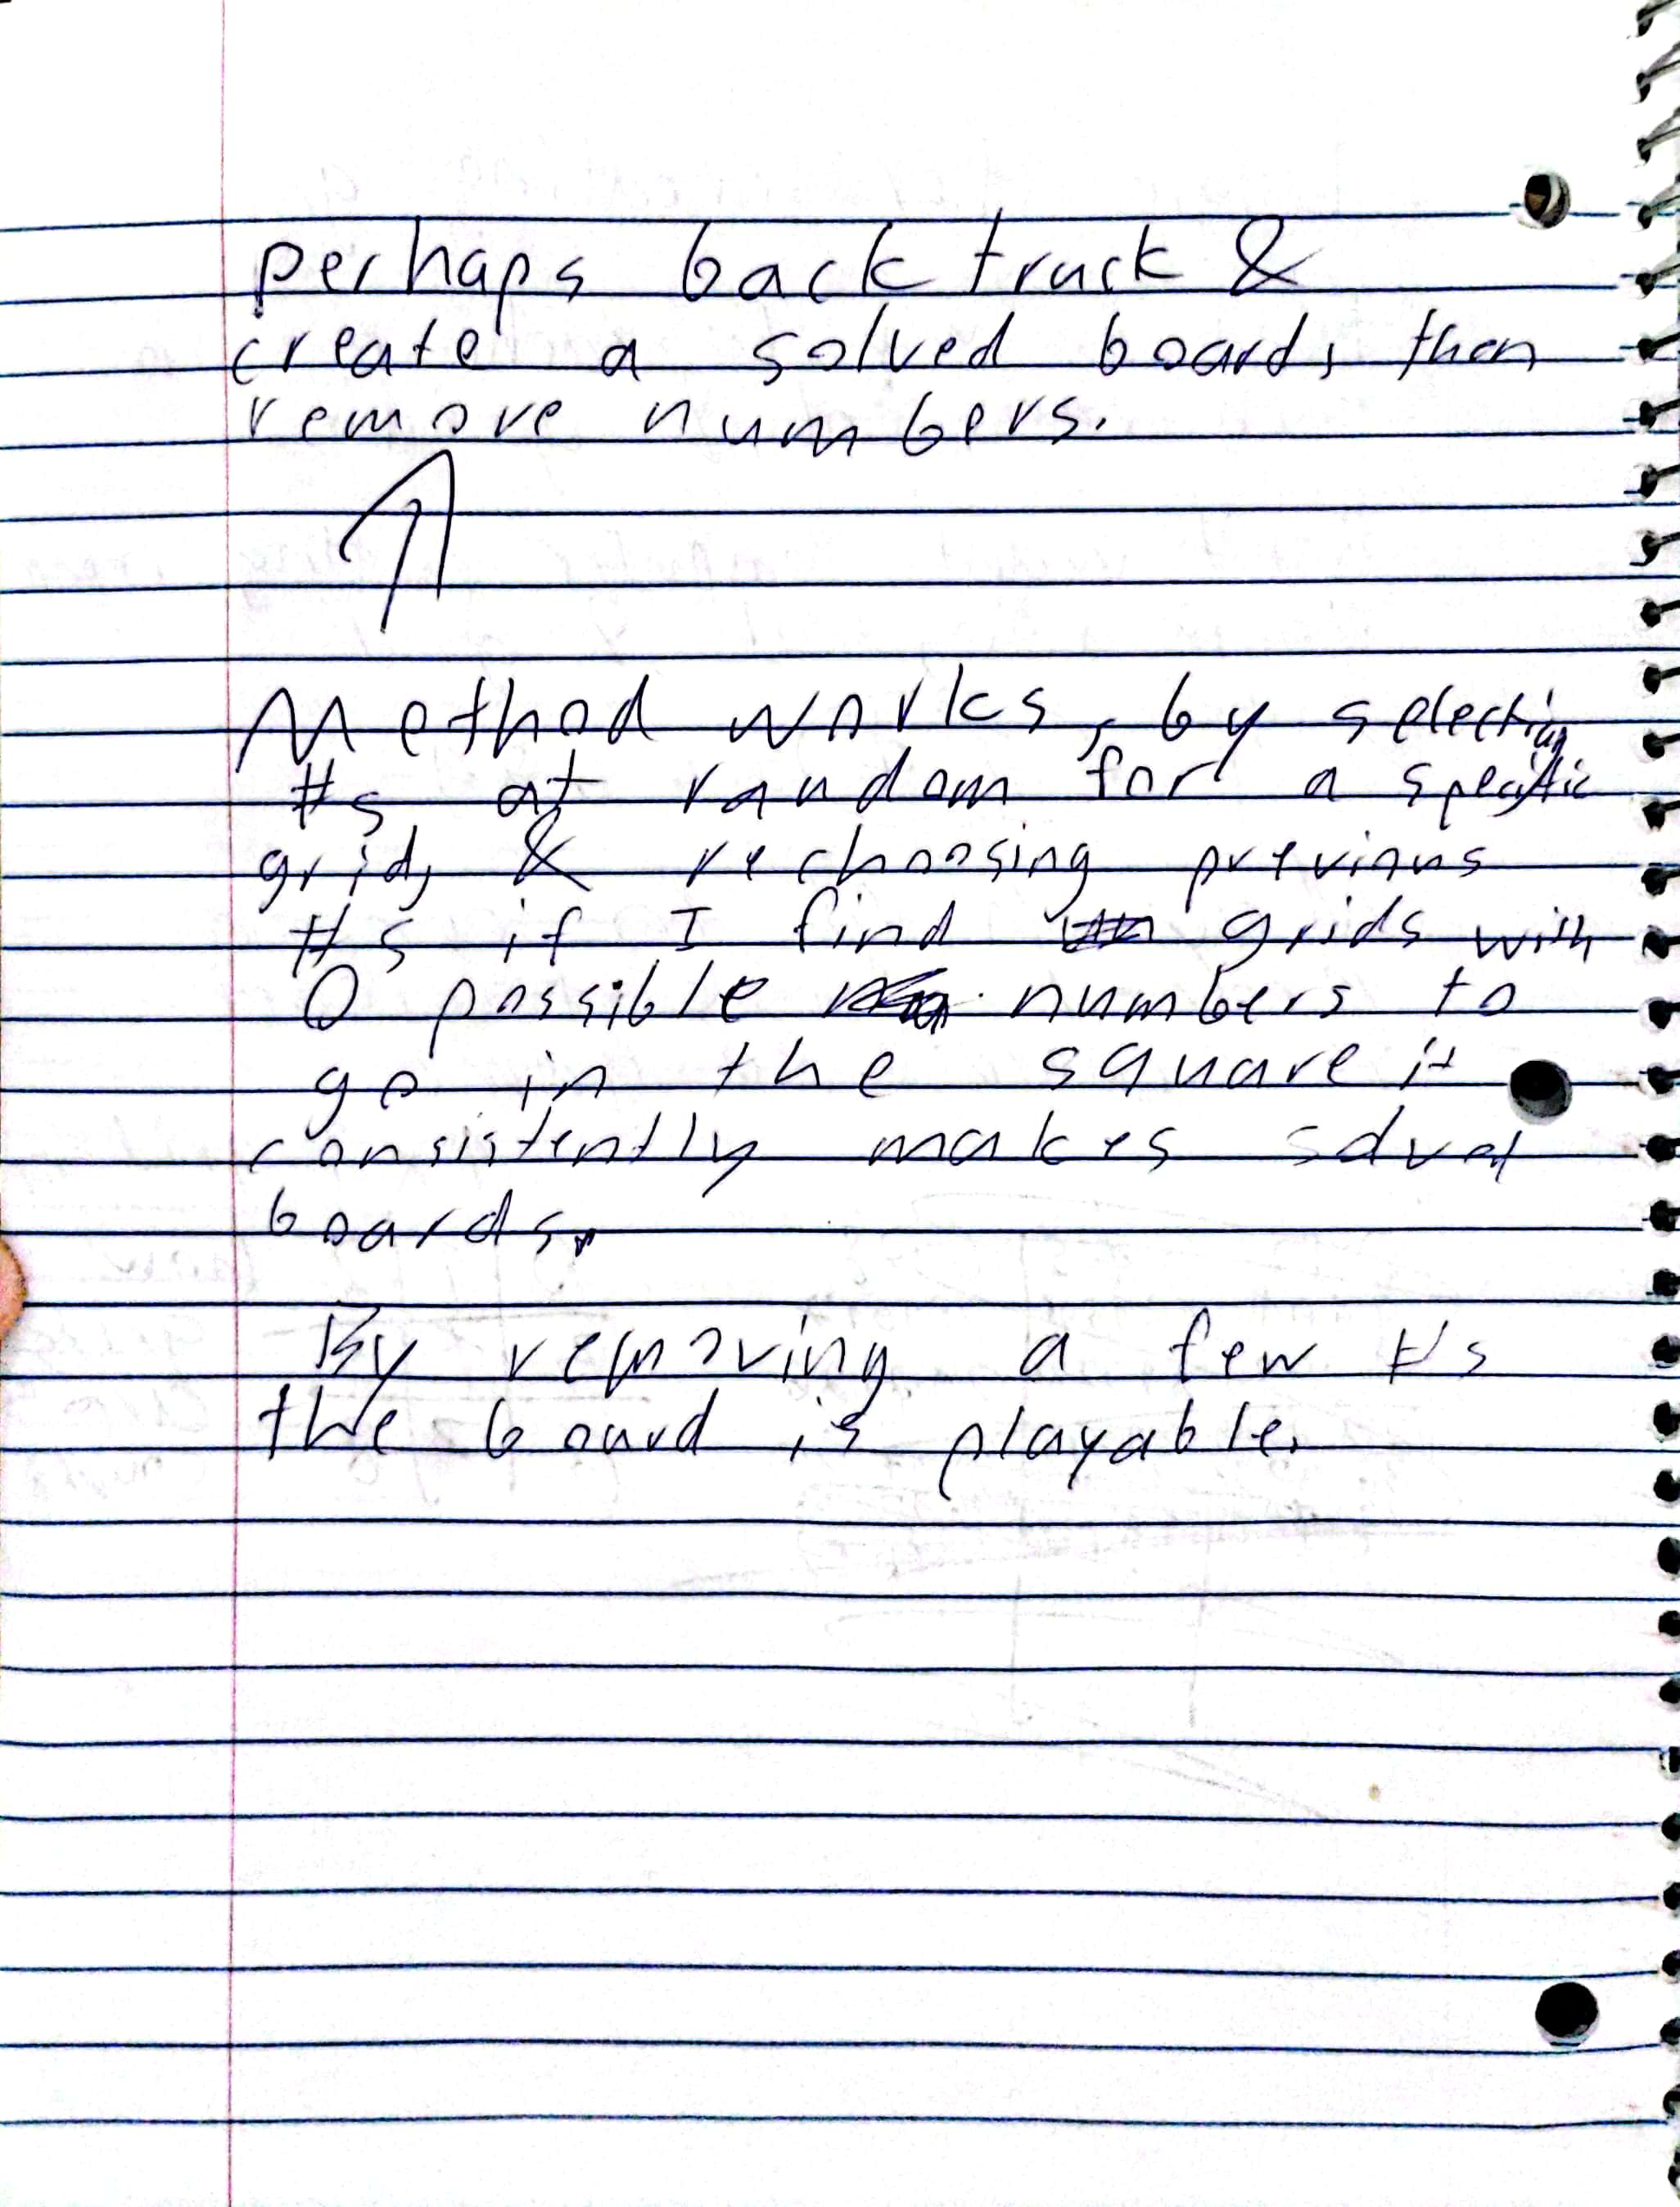 perhaps back track &
create a solved board, then
remove numbers.
Method works, by selecting
#s at random for a specific
grid, & rechoosing previous
#s if I find grids with
0 possible numbers to
go in the square it
consistently makes solved
boards.
By removing a few #s
the board is playable.